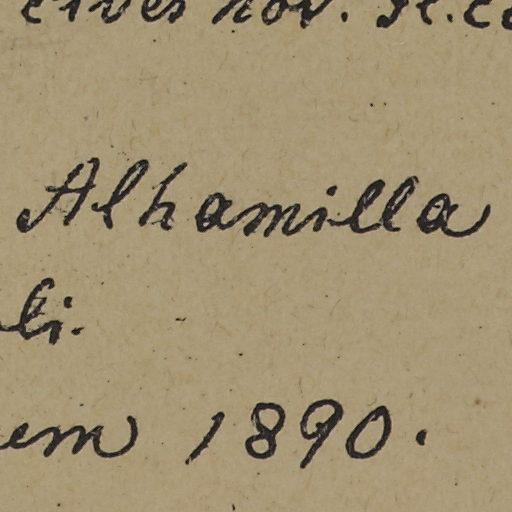 nov.
Alhamilla
li.
em 1890.